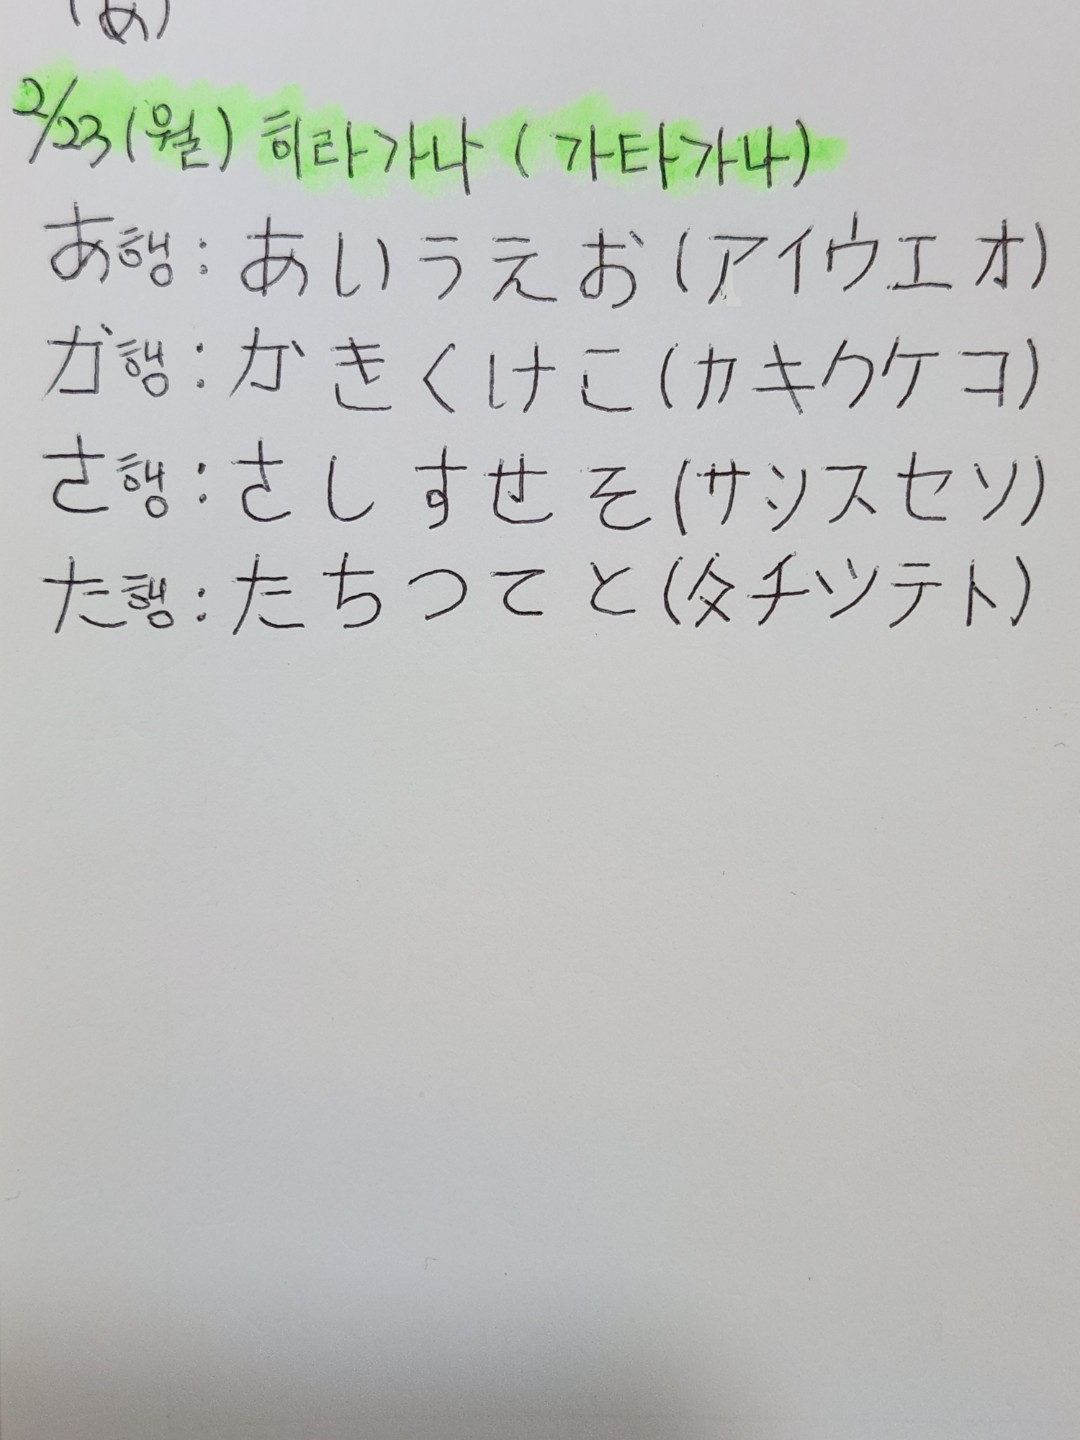 (め)
2/23(월) 히라가나 (가타가나)
あ행: あいうえお(アイウエオ)
か행: かきくけこ(カキクケコ)
さ행: さしすせそ(サシスセソ)
た행: たちつてと(タチツテト)